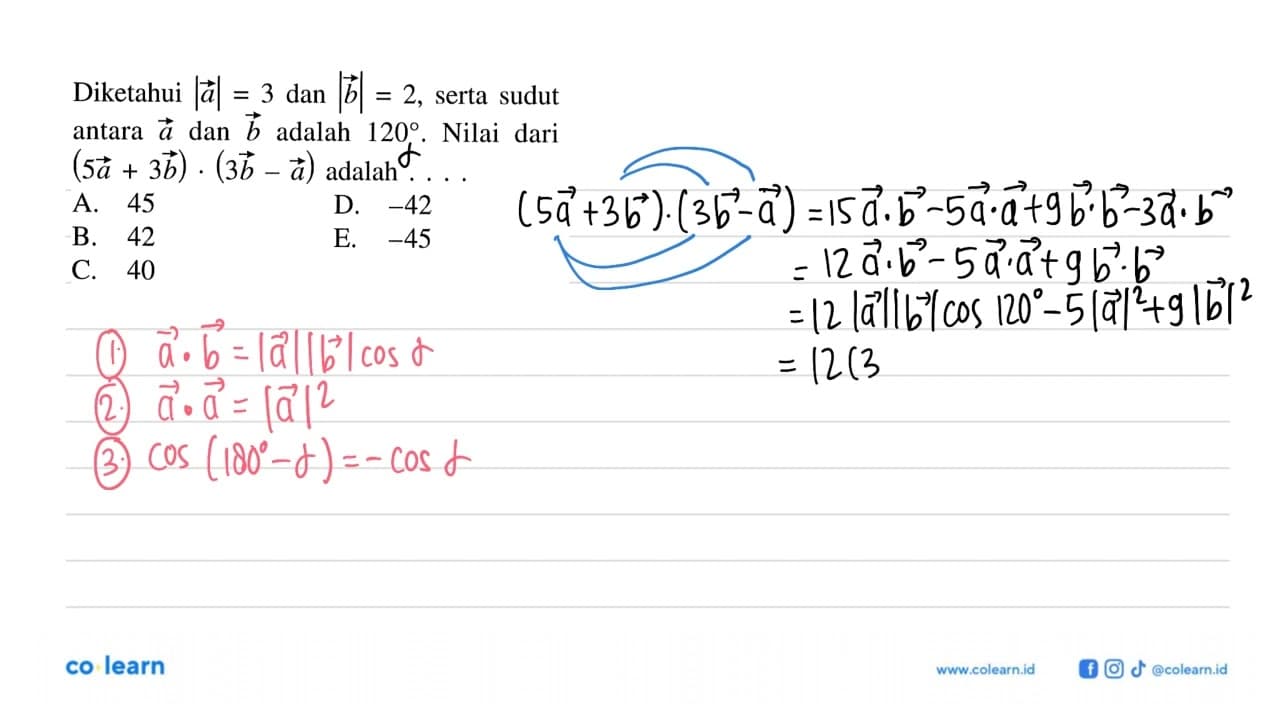 Diketahui |a⃗| = 3 dan |b⃗| = 2, serta sudut
antara a⃗ dan b⃗ adalah 120°. Nilai dari
(5a⃗ + 3b⃗) · (3b⃗ – a⃗) adalah . . . .
α
A. 45 D. –42
B. 42 E. –45
C. 40
(5a⃗+3b⃗)·(3b⃗-a⃗) = 15a⃗·b⃗-5a⃗·a⃗+9b⃗·b⃗-3a⃗·b⃗
= 12a⃗·b⃗-5a⃗·a⃗+9b⃗·b⃗
= 12|a⃗||b⃗|cos 120°-5|a⃗|²+9|b⃗|²
= 12(3
1. a⃗·b⃗ = |a⃗||b⃗|cos α
2. a⃗·a⃗ = |a⃗|²
3. cos (180°-α) = -cos α
co learn
www.colearn.id @colearn.id